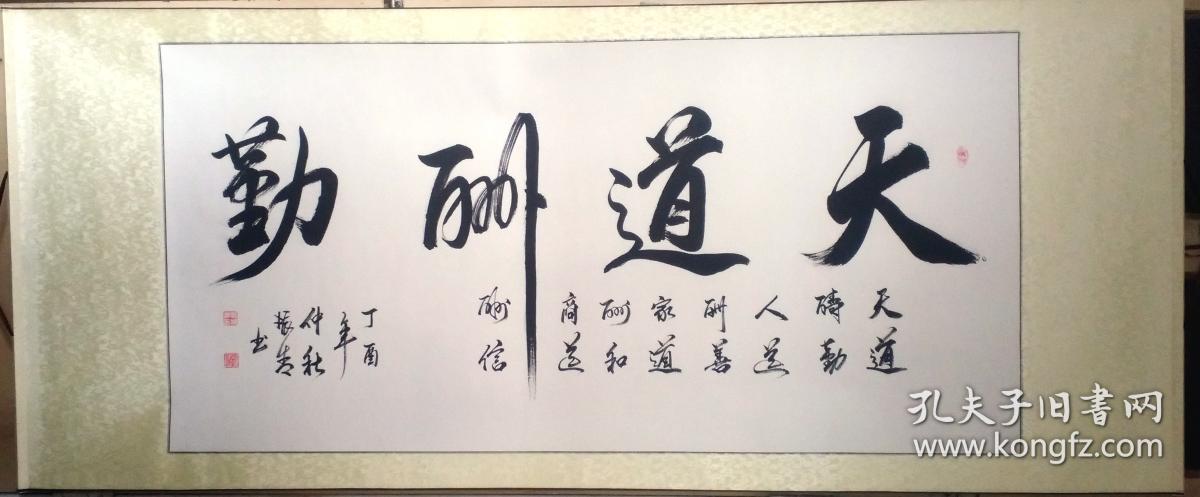 天道酬勤
天道
酬勤
人道
酬善
家道
酬和
商道
酬信
丁酉
年
仲秋
振
书
孔夫子旧書网
www.kongfz.com